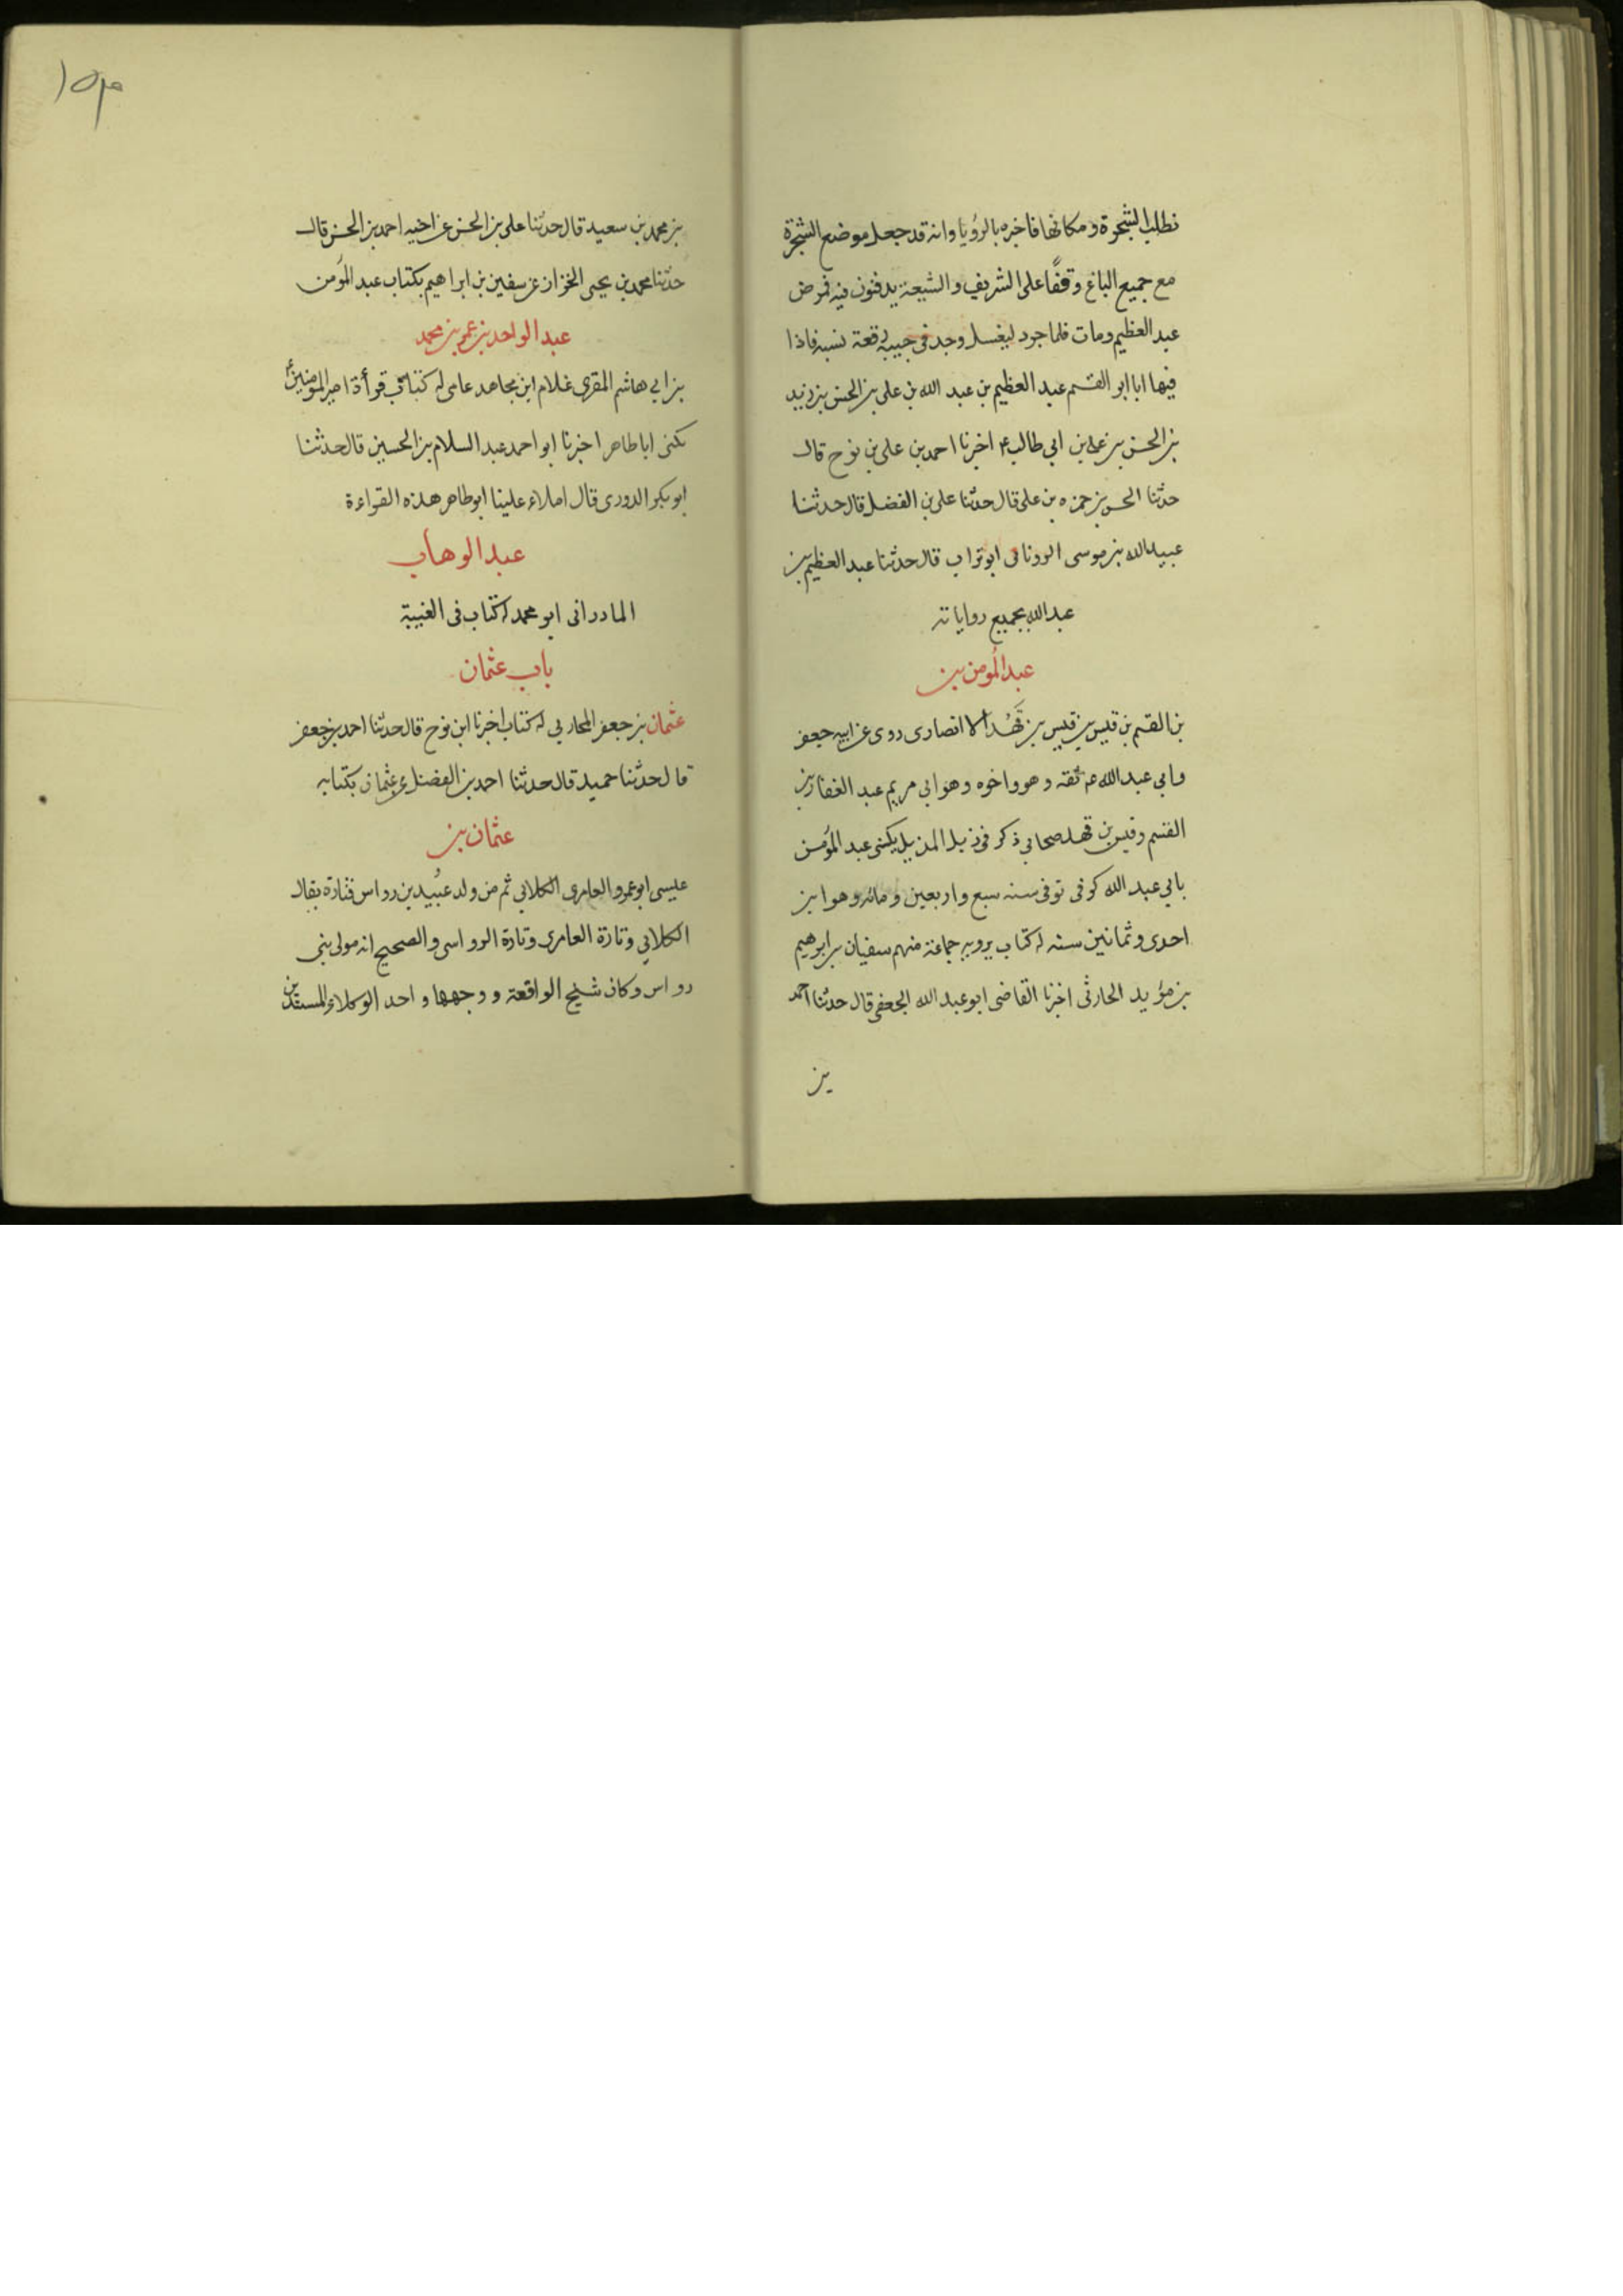 نطلب الشجرة ومكانها فاخبره بالرؤيا وانه قد جعل موضع الشجرة
مع جميع الباغ وقفًا على الشريف والشيعة يدفنون فيه فمرض
عبد العظيم ومات فلما جرد ليغسل وجد فى جيبه رقعة نسبه فاذا
فيها انا ابو القسم عبد العظيم بن عبد الله بن على بن الحسن بن زيد
بن الحسن بن على بن ابي طالب ع اخبرنا احمد بن على بن نوح قال
حدثنا الحسن بن حمزه بن على قال حدثنا على بن الفضل قال حدثنا
عبيد الله بن موسى الرويانى ابو تراب قال حدثنا عبد العظيم بن
عبد الله بجميع رواياته
عبد المؤمن بن
بن القسم بن قيس بن قيس بن قَهْد الانصارى روى عن ابيه جعفر
وابي عبد الله عم ثقه وهو واخوه وهو ابى مريم عبد الغفار بن
القسم وقيس بن قهد صحابي ذكر فى ذيل المذيل يكنى عبد المؤمن
بابي عبد الله كوفى توفى سنه سبع واربعين ومائه وهو ابن
احدى وثمانين سنه له كتاب يرويه جماعة منهم سفيان بن ابرهيم
بن مؤيد الحارثى اخبرنا القاضى ابو عبد الله الجعفى قال حدثنا احمد
بن
١٥٣
بن محمد بن سعيد قال حدثنا على بن الحسن عن اخيه احمد بن الحسن قال
حدثنا محمد بن يحيى الخزاز عن سفين بن ابراهيم بكتاب عبد المؤمن
عبد الواحد بن عمر بن محمد
بن ابي هاشم المقرى غلام ابن مجاهد عامى له كتاب فى قرأة امير المؤمنين ع
يكنى ابا طاهر اخبرنا ابو احمد عبد السلام بن الحسين قال حدثنا
ابو بكر الدورى قال املاء علينا ابو طاهر هذه القراءة
عبد الوهاب
المادرانى ابو محمد له كتاب فى الغيبة
باب عثمان
عثمان بن جعفر المحاربي له كتاب اخبرنا ابن نوح قال حدثنا احمد بن جعفر
قال حدثنا حميد قال حدثنا احمد بن الفضل عن عثمان بكتابه
عثمان بن
عيسى ابو عمرو العامرى الكلابي ثم من ولد عبُيد بن رواس فتارة يقال
الكلابي وتارة العامرى وتارة الرواسى والصحيح انه مولى بنى
رواس وكان شيخ الواقعة ووجهها واحد الوكلاء المستبدين